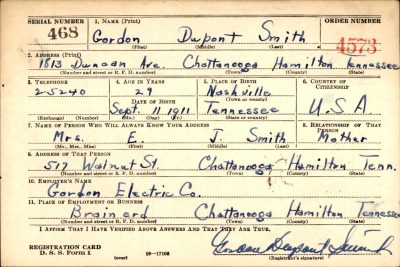 SERIAL NUMBER 1. NAME (Print) ORDER NUMBER
468 Gordon Dupont Smith 4573
(First) (Middle) (Last)
2. ADDRESS (Print)
1813 Duncan Ave. Chattanooga Hamilton Tennessee
(Number and street or R. F. D. number) (Town) (County) (State)
3. TELEPHONE 4. AGE IN YEARS 5. PLACE OF BIRTH 6. COUNTRY OF CITIZENSHIP
25240 29 Nashville
DATE OF BIRTH (Town or county)
Sept. 11 1911 Tennessee U.S.A.
(Exchange) (Number) (Mo.) (Day) (Yr.) (State or country)
7. NAME OF PERSON WHO WILL ALWAYS KNOW YOUR ADDRESS 8. RELATIONSHIP OF THAT PERSON
Mrs. E. J. Smith Mother
(Mr., Mrs., Miss) (First) (Middle) (Last)
9. ADDRESS OF THAT PERSON
517 Walnut St. Chattanooga Hamilton Tenn.
(Number and street or R. F. D. number) (Town) (County) (State)
10. EMPLOYER'S NAME
Gordon Electric Co.
11. PLACE OF EMPLOYMENT OR BUSINESS
Brainerd Chattanooga Hamilton Tennessee
(Number and street or R. F. D. number) (Town) (County) (State)
I AFFIRM THAT I HAVE VERIFIED ABOVE ANSWERS AND THAT THEY ARE TRUE.
REGISTRATION CARD
D. S. S. Form 1 (over) 16—17105 Gordon Dupont Smith
(Registrant's signature)